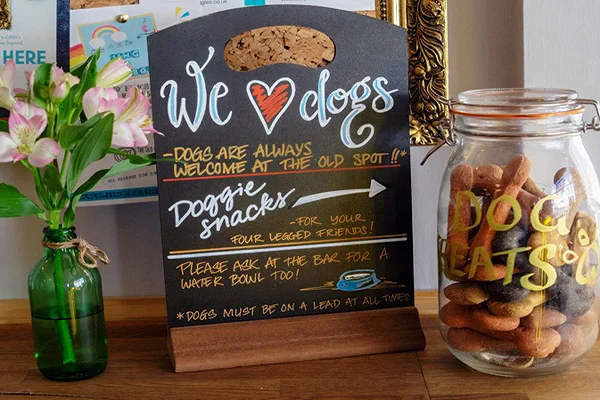 HERE
We ♥ dogs
-DOGS ARE ALWAYS
WELCOME AT THE OLD SPOT!!*
Doggie
snacks
-FOR YOUR
FOUR LEGGED FRIENDS!
PLEASE ASK AT THE BAR FOR A
WATER BOWL TOO!
*DOGS MUST BE ON A LEAD AT ALL TIMES
DOG